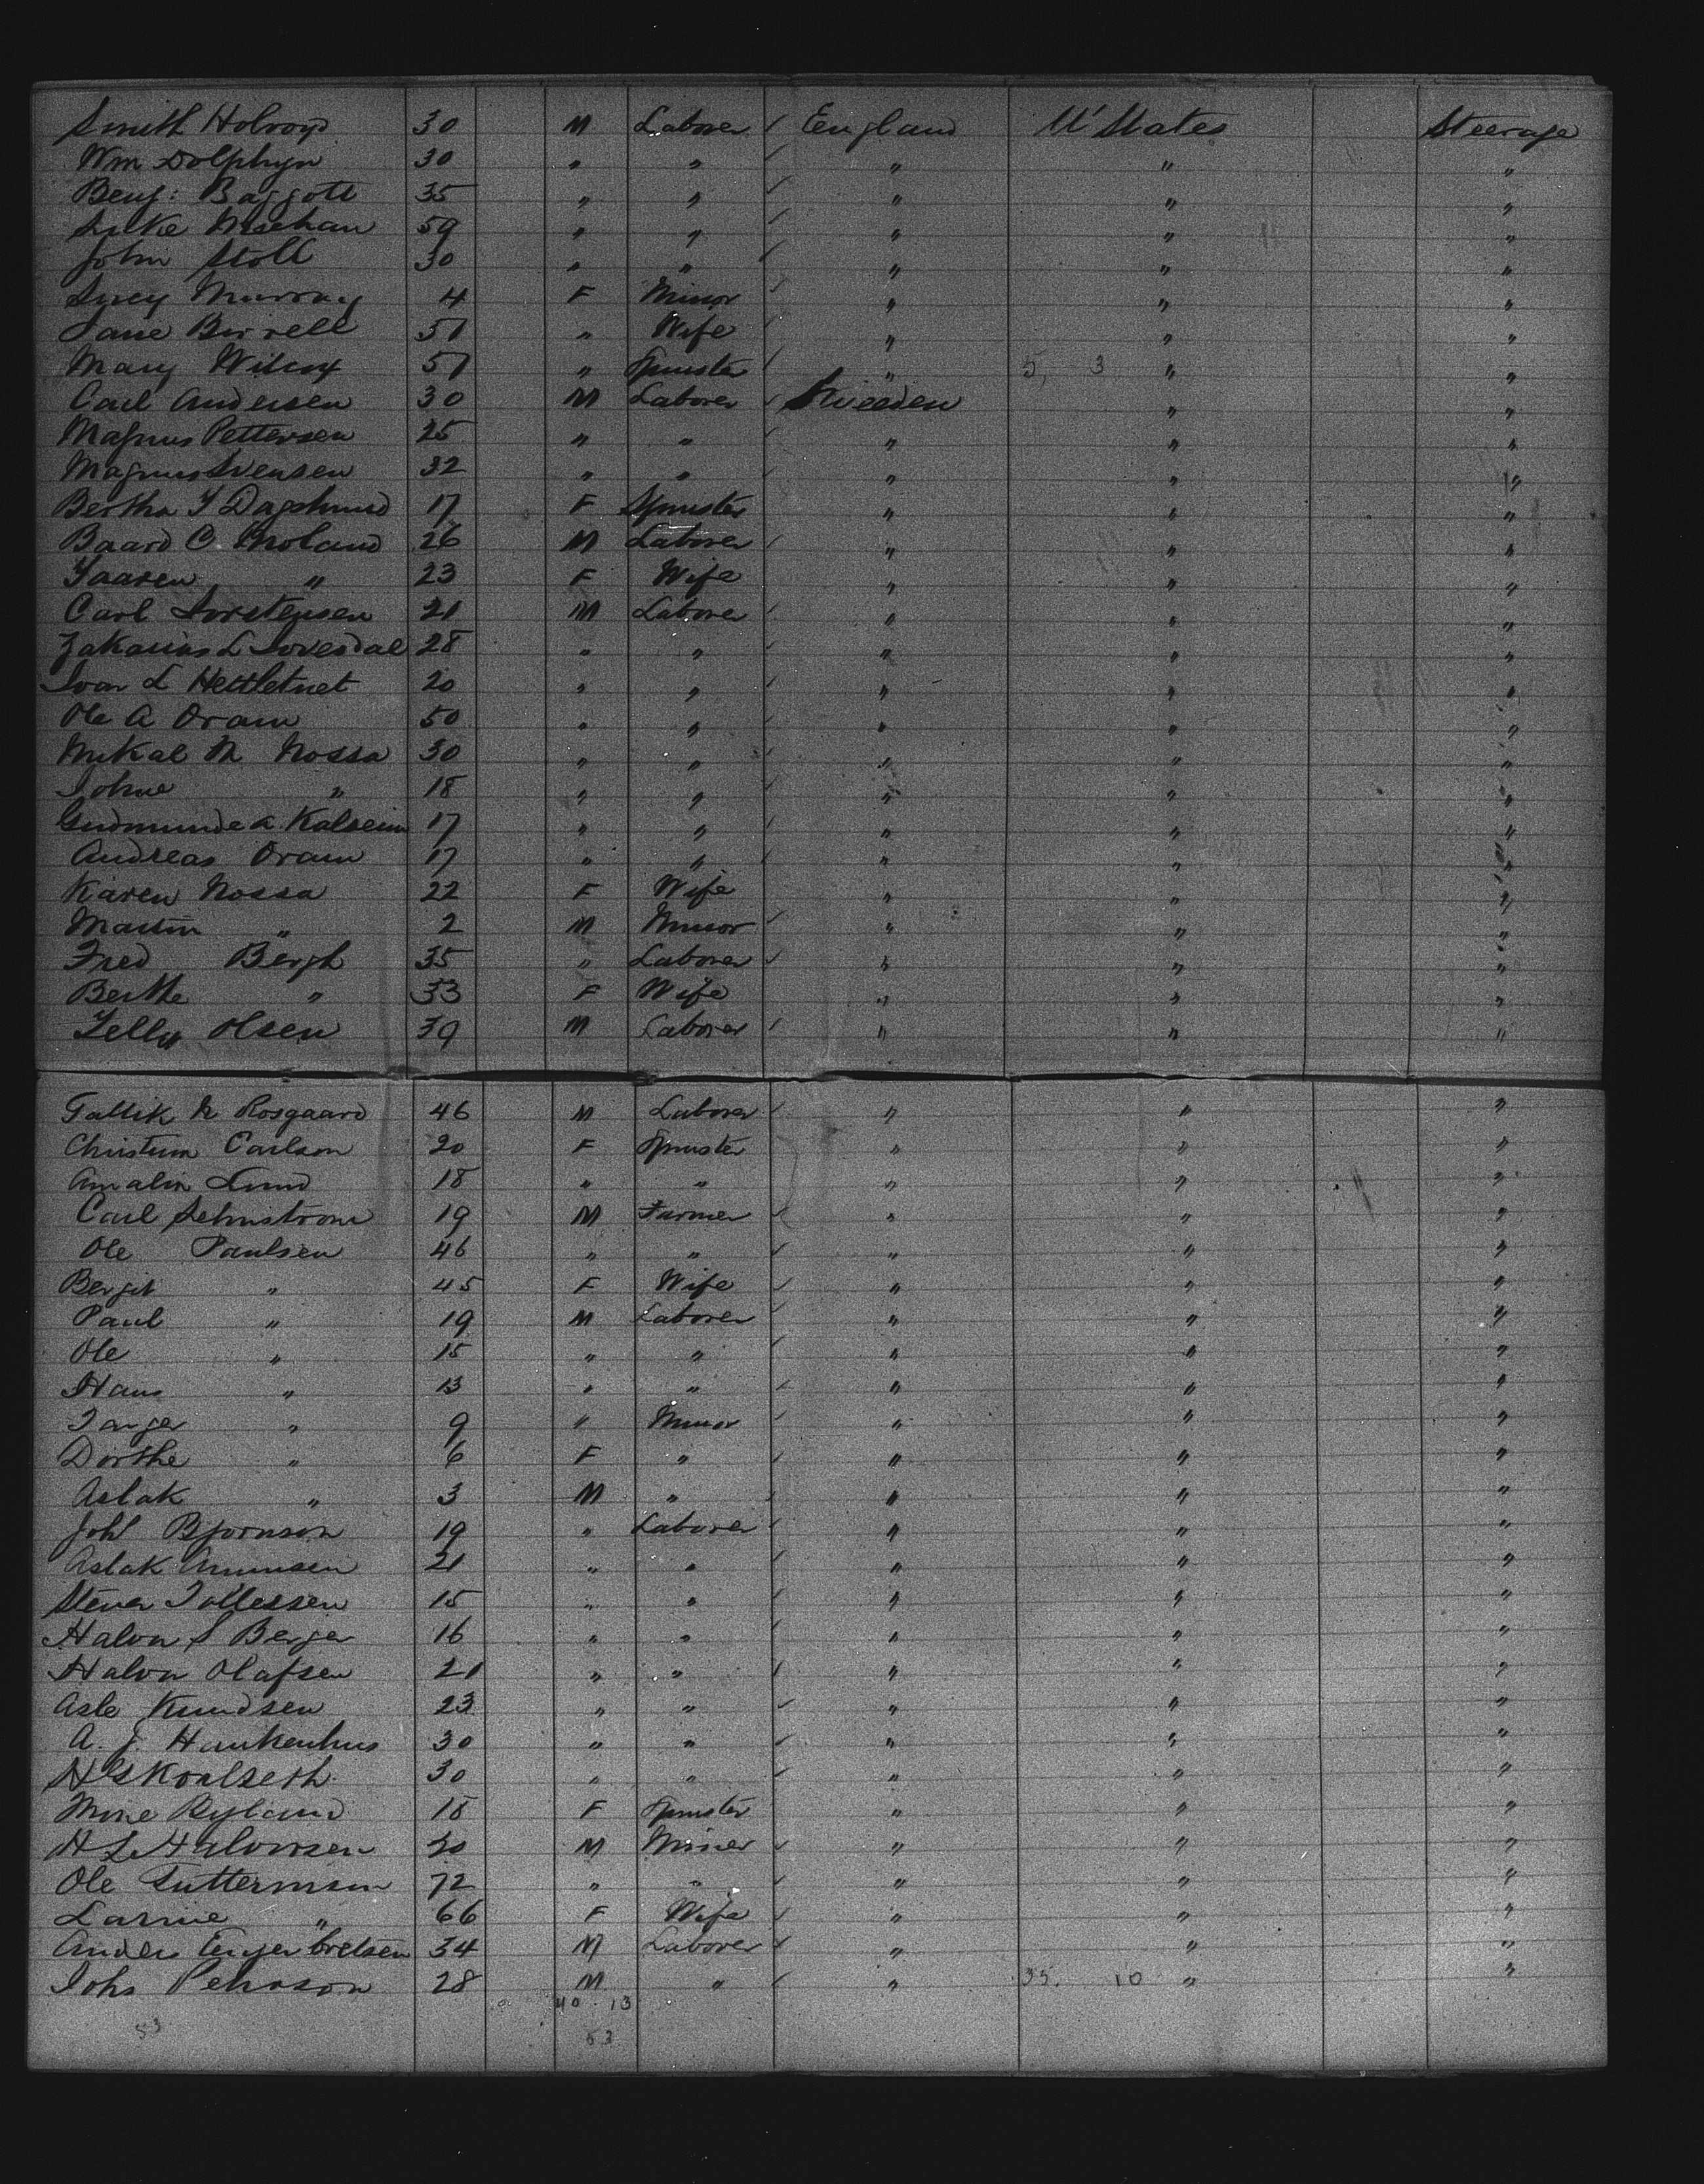 Smith Holroyd 30 M Laborer ✓ England U' States Steerage
Wm Dolphyn 30 " " ✓ " " "
Benj: Baggott 35 " " ✓ " " "
Luke Meehan 59 " " ✓ " " "
John Stoll 30 " " ✓ " " "
Lucy Murray 4 F Minor ✓ " " "
Jane Birrell 51 " Wife ✓ " " "
Mary Wilcox 51 " Spinster ✓ " 5, 3 " "
Carl Andersen 30 M Laborer ✓ Sweeden " "
Magnus Pettersen 25 " " ✓ " " "
Magnus Svensen 32 " " ✓ " " "
Bertha T Dagslund 17 F Spinster " " "
Baard C. Moland 26 M Laborer ✓ " " "
Taaren " 23 F Wife " " "
Carl Torstensen 21 M Laborer ✓ " " "
Zakarias L 28 " " ✓ " " "
Ivar L Hettletvet 20 " " ✓ " " "
Ole A Oram 50 " " ✓ " " "
Mikal M Nossa 30 " " ✓ " " "
Johne " 18 " " ✓ " " "
Gudmunde A. Kalseim 17 " " ✓ " " "
Andreas Oram 17 " " ✓ " " "
Karen Nossa 22 F Wife " " "
Martin " 2 M Minor ✓ " " "
Fred Bergh 35 " Laborer ✓ " " "
Berthe " 33 F Wife " " "
Zelly Olsen 39 M Laborer ✓ " " "
Tallik N Rosgaard 46 M Laborer ✓ " " "
Christina Carlson 20 F Spinster " " "
Amalia Lund 18 " " " " "
Carl Sehnstrom 19 M Farmer ✓ " " "
Ole Paulsen 46 " " ✓ " " "
Bergit " 45 F Wife ✓ " " "
Paul " 19 M Laborer ✓ " " "
Ole " 15 " " ✓ " " "
Hans " 13 " " ✓ " " "
Targer " 9 " Minor ✓ " " "
Dorthe " 6 F " ✓ " " "
Aslak " 3 M " ✓ " " "
Johl Bjornson 19 " Laborer ✓ " " "
Aslak Amunsen 21 " " ✓ " " "
Stener Tollessen 15 " " ✓ " " "
Halvn S Berger 16 " " ✓ " " "
Halvn Olafsen 21 " " ✓ " " "
Asle Knudsen 23 " " ✓ " " "
A. J. Haukenhus 30 " " ✓ " " "
H G Kralseth 30 " " ✓ " " "
Mone Byland 18 F Spinster " " "
H L Halvorsen 20 M Miner ✓ " " "
Ole Guttermsen 72 " " ✓ " " "
Larine " 66 F Wife ✓ " " "
Anders Engerbretsen 34 M Laborer ✓ " " "
Johs Pehrson 28 M " ✓ " 35. 10 " "
40 13
53 53